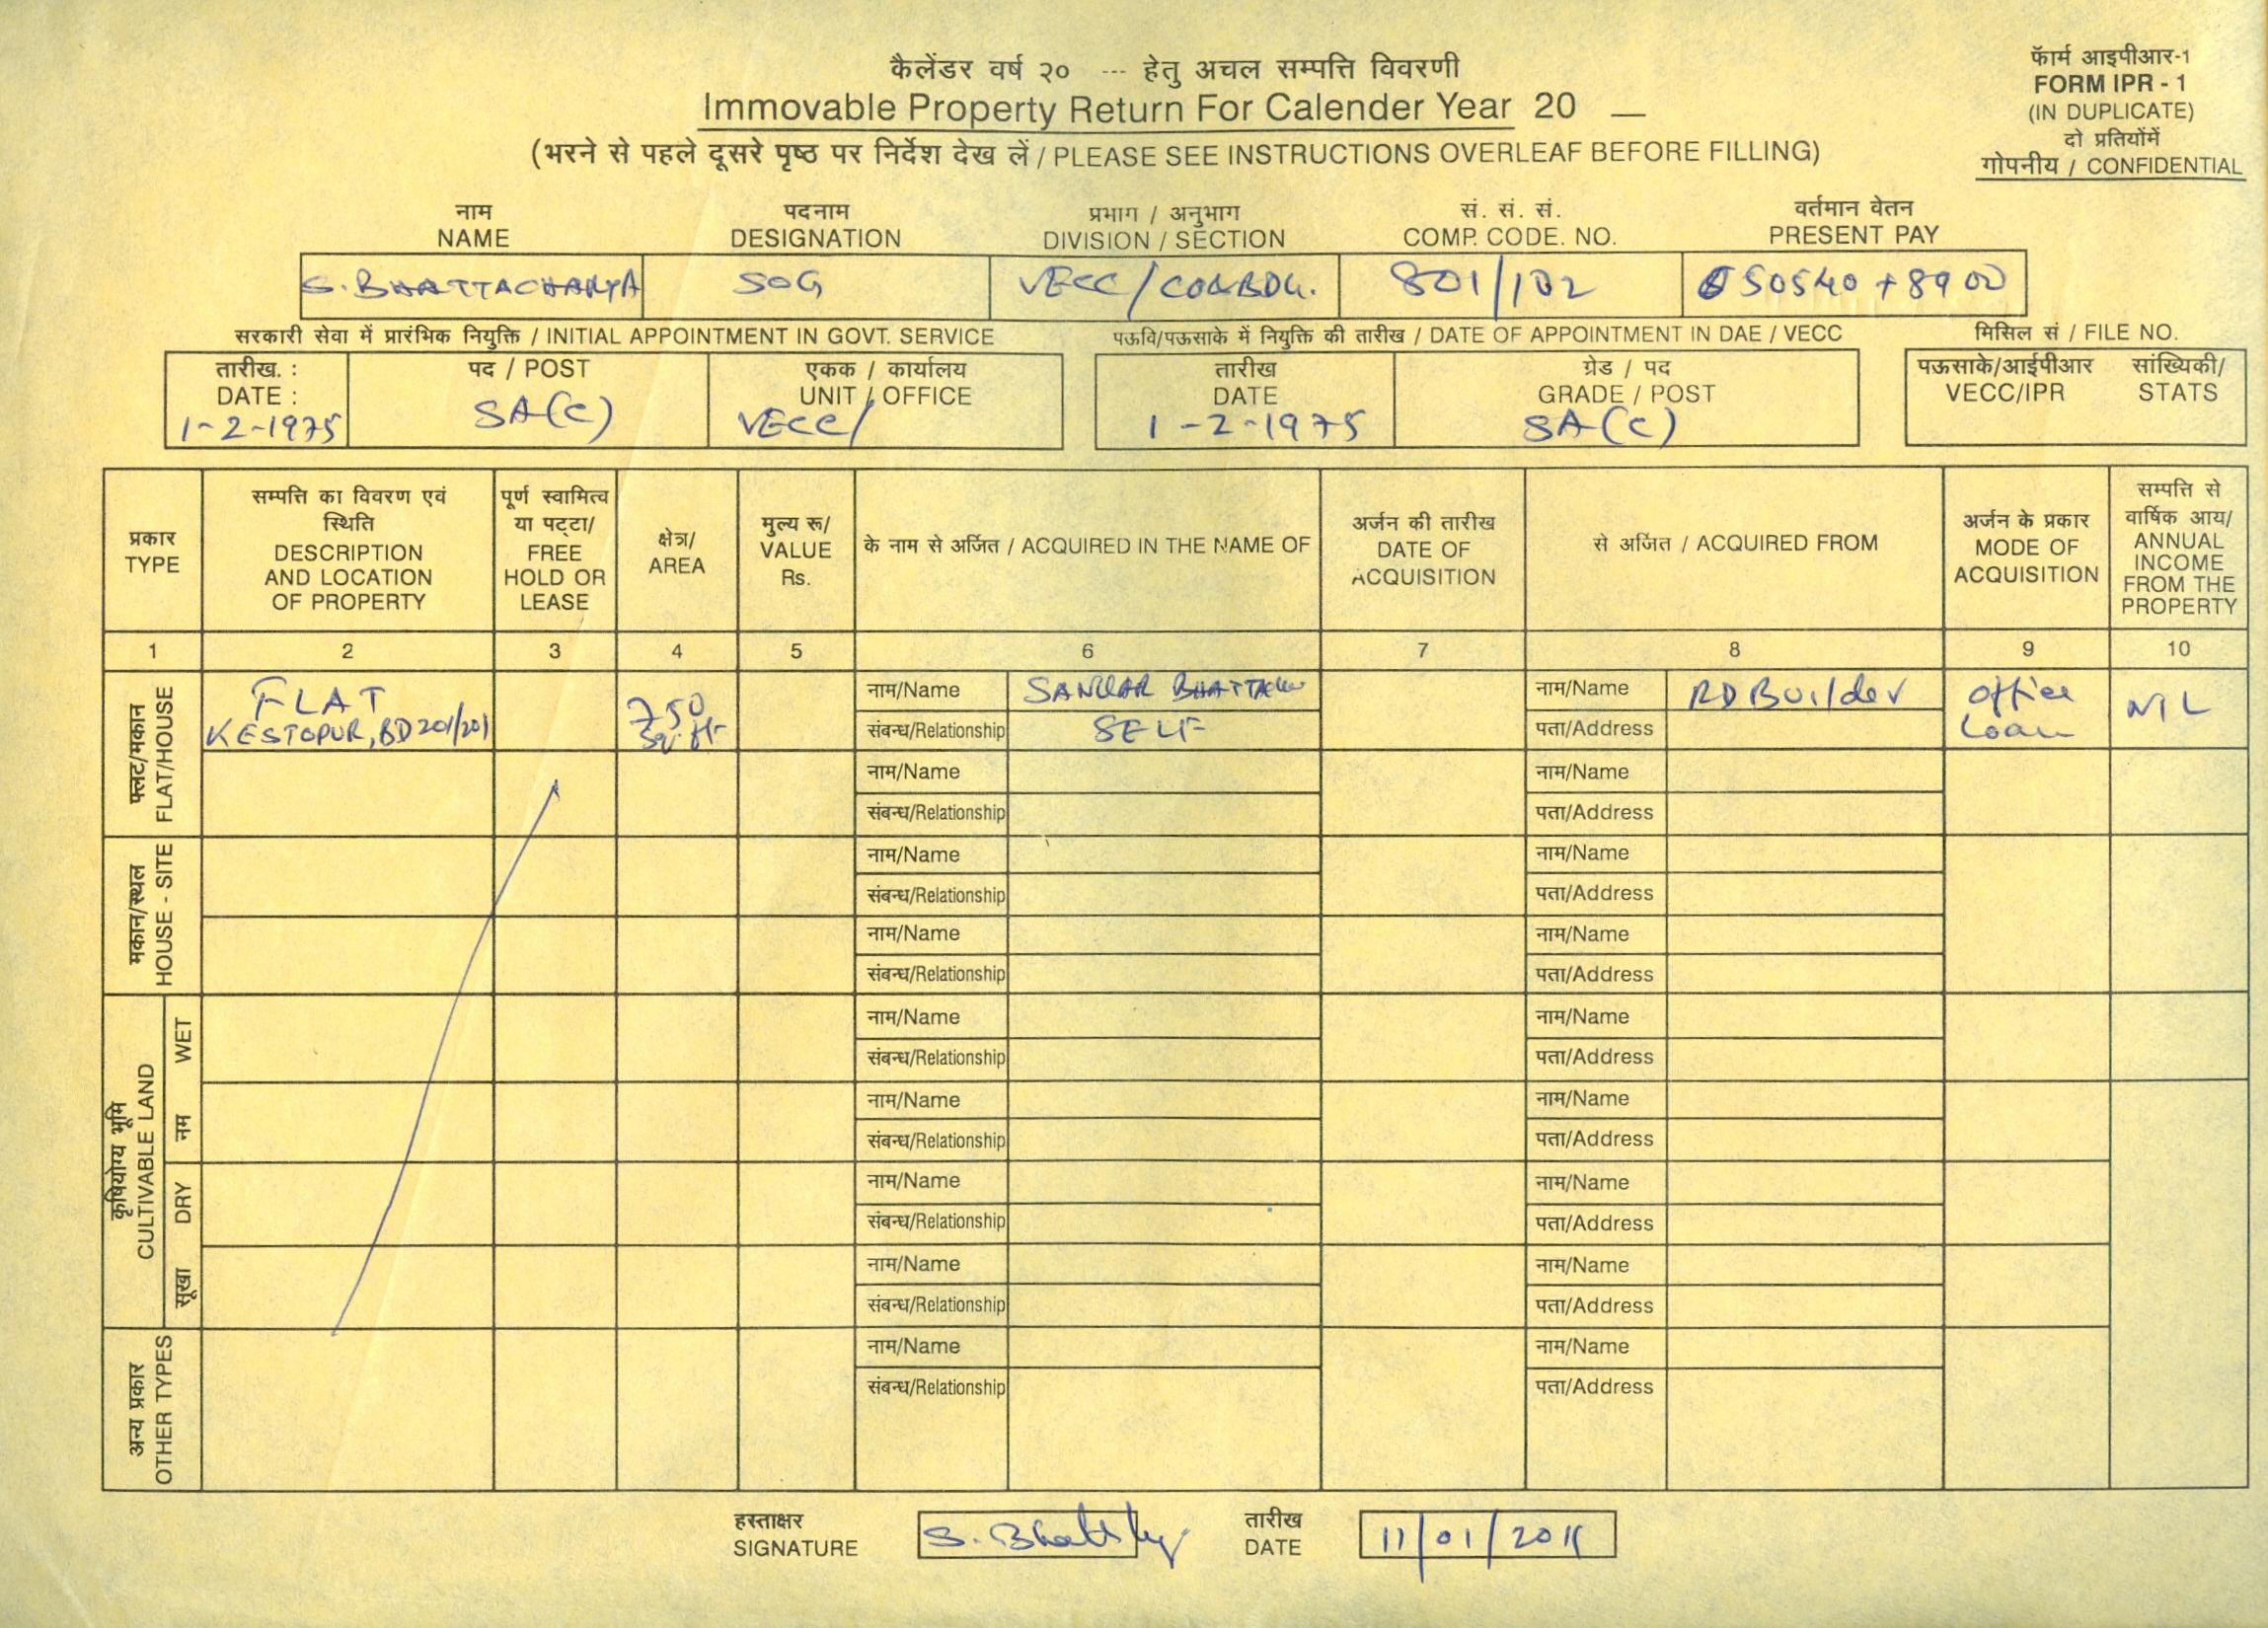 कैलेंडर वर्ष २० --- हेतु अचल सम्पत्ति विवरणी
Immovable Property Return For Calender Year 20 __
(भरने से पहले दूसरे पृष्ठ पर निर्देश देख लें / PLEASE SEE INSTRUCTIONS OVERLEAF BEFORE FILLING)
फॅार्म आइपीआर-1
FORM IPR - 1
(IN DUPLICATE)
दो प्रतियोंमें
गोपनीय / CONFIDENTIAL
नाम पदनाम प्रभाग / अनुभाग सं. सं. सं. वर्तमान वेतन
NAME DESIGNATION DIVISION / SECTION COMP. CODE. NO. PRESENT PAY
S. BHATTACHARYA SOG VECC/ 801/102 50540 + 8900
सरकारी सेवा में प्रारंभिक नियुक्ति / INITIAL APPOINTMENT IN GOVT. SERVICE
पऊवि/पऊसाके में नियुक्ति की तारीख / DATE OF APPOINTMENT IN DAE / VECC
मिसिल सं / FILE NO.
तारीख. : पद / POST एकक / कार्यालय तारीख ग्रेड / पद पऊसाके/आईपीआर सांख्यिकी/
DATE : UNIT / OFFICE DATE GRADE / POST VECC/IPR STATS
1-2-1975 SA(C) VECC/ 1-2-1975 SA(C)
प्रकार
TYPE
सम्पत्ति का विवरण एवं
स्थिति
DESCRIPTION
AND LOCATION
OF PROPERTY
पूर्ण स्वामित्व
या पट्टा/
FREE
HOLD OR
LEASE
क्षेत्र/
AREA
मुल्य रू/
VALUE
Rs.
के नाम से अर्जित / ACQUIRED IN THE NAME OF
अर्जन की तारीख
DATE OF
ACQUISITION
से अर्जित / ACQUIRED FROM
अर्जन के प्रकार
MODE OF
ACQUISITION
सम्पत्ति से
वार्षिक आय/
ANNUAL
INCOME
FROM THE
PROPERTY
1 2 3 4 5 6 7 8 9 10
फ्लट/मकान
FLAT/HOUSE
FLAT
KESTOPUR, BD 201/201
750
Sq. ft
नाम/Name SANKAR
संबन्ध/Relationship SELF
नाम/Name RD Builder
पता/Address
office
Loan
NIL
नाम/Name नाम/Name
संबन्ध/Relationship पता/Address
मकान/स्थल
HOUSE - SITE
नाम/Name नाम/Name
संबन्ध/Relationship पता/Address
नाम/Name नाम/Name
संबन्ध/Relationship पता/Address
कृषियोग्य भूमि
CULTIVABLE LAND
WET
नम
नाम/Name नाम/Name
संबन्ध/Relationship पता/Address
नाम/Name नाम/Name
संबन्ध/Relationship पता/Address
DRY
सूखा
नाम/Name नाम/Name
संबन्ध/Relationship पता/Address
नाम/Name नाम/Name
संबन्ध/Relationship पता/Address
अन्य प्रकार
OTHER TYPES
नाम/Name नाम/Name
संबन्ध/Relationship पता/Address
हस्ताक्षर
SIGNATURE
तारीख
DATE
11/01/2011